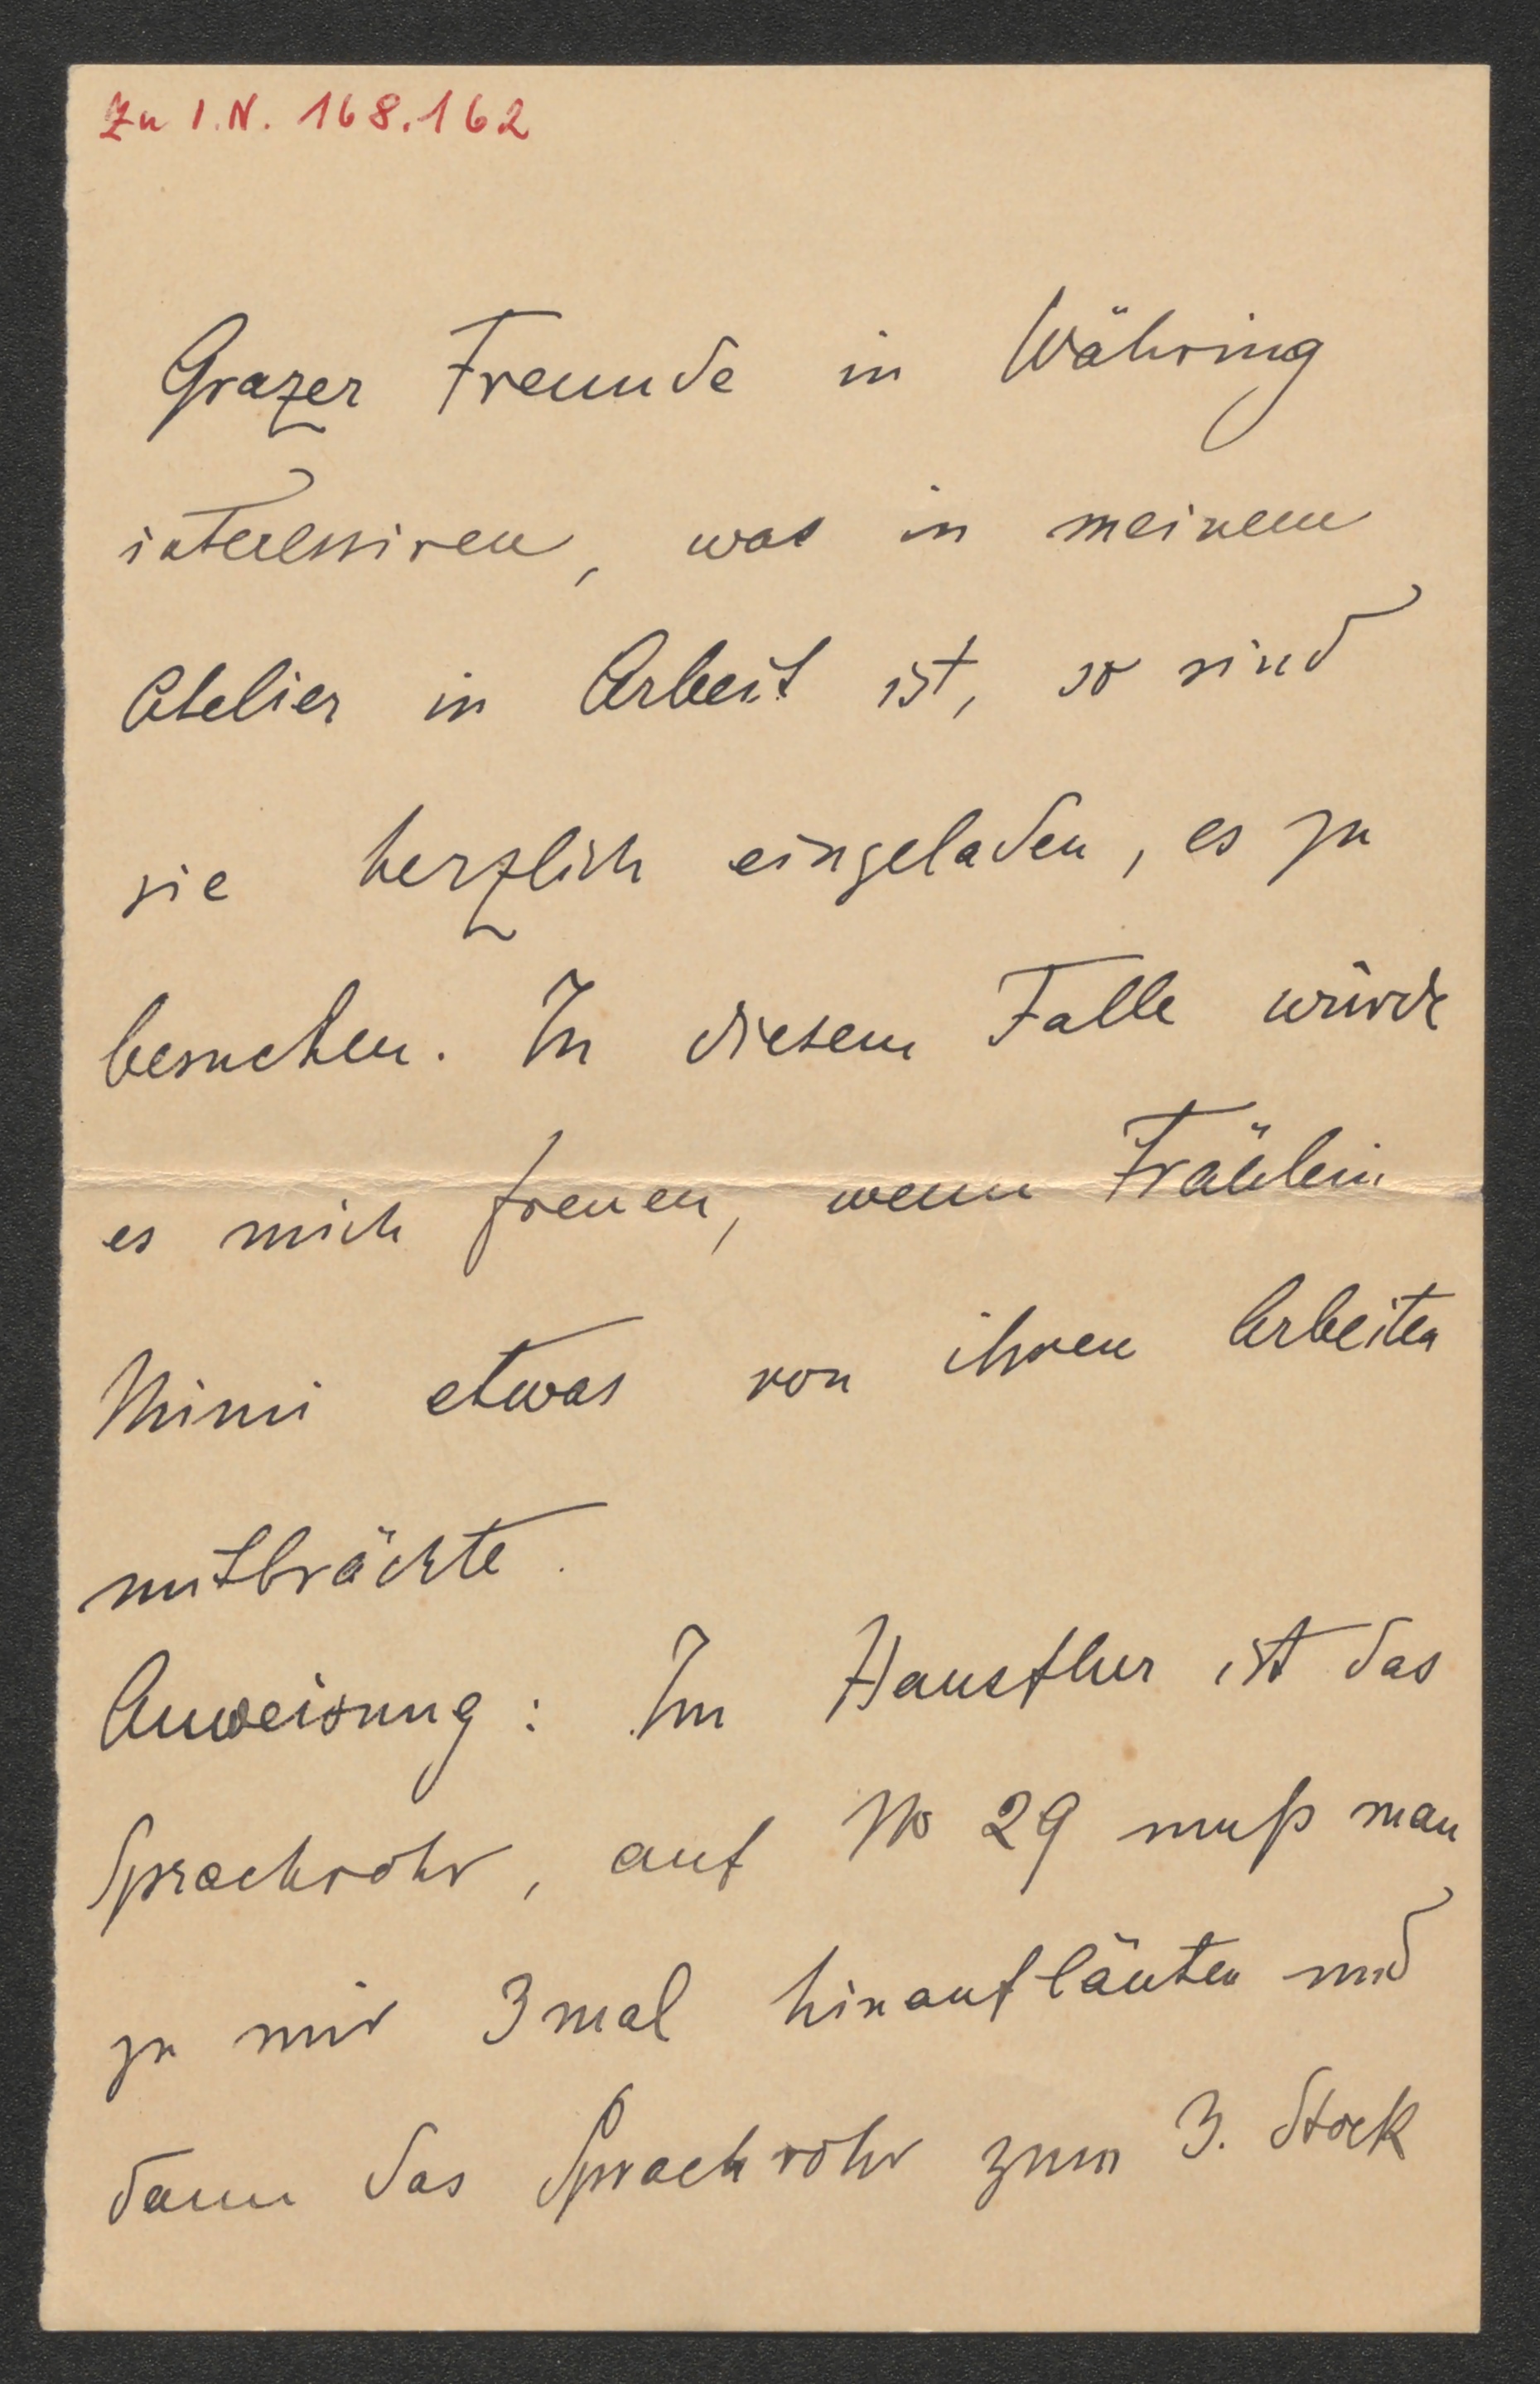 Zu I.N. 168.162
Grazer Freunde in Währing
interessiren, was in meinem
Atelier in Arbeit ist, so sind
sie herzlich eingeladen, es zu
besuchen. In diesem Falle würde
es mich freuen, wenn Fräulein
Mimi etwas von ihren Arbeiten
mitbrächte.
Anweisung: Im Hausflur ist das
Sprachrohr, auf No 29 muß man
zu mir 3mal hinaufläuten und
dann das Sprachrohr zum 3. Stock